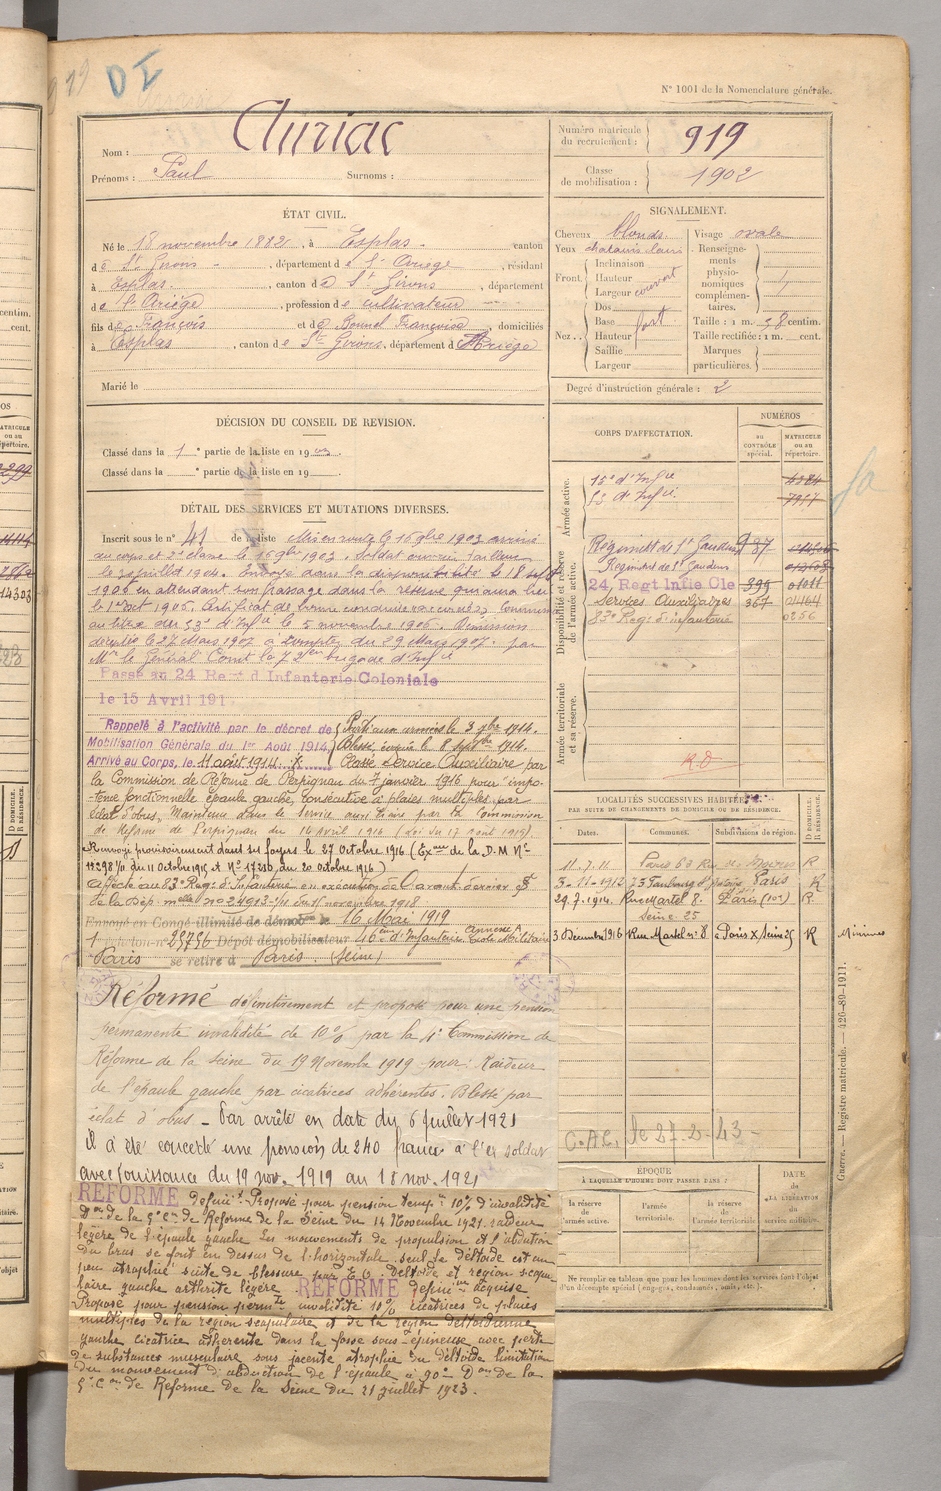 919
DI
N° 1001 de la Nomenclature générale.
Nom : Auriac
Prénoms : Paul Surnoms :
Numéro matricule du recrutement : 919
Classe de mobilisation : 1902
ÉTAT CIVIL.
Né le 18 novembre 1882, à Esplas canton
de St Girons, département de l'Ariège, résidant
à Esplas, canton de St Girons, département
de l'Ariège, profession de cultivateur
fils de François et de Bonnel Françoise, domiciliés
à Esplas, canton de St Girons, département d'Ariège
Marié le
SIGNALEMENT.
Cheveux blonds Visage ovale
Yeux chatains clairs Renseignements physionomiques complémentaires.
Front Inclinaison
Hauteur
Largeur couvert
Nez Dos
Base fort
Hauteur
Saillie
Largeur
Taille : 1 m. 58 centim.
Taille rectifiée : 1 m. cent.
Marques particulières.
Degré d'instruction générale : 2
DÉCISION DU CONSEIL DE REVISION.
Classé dans la 1e partie de la liste en 1903
Classé dans la e partie de la liste en 19
DÉTAIL DES SERVICES ET MUTATIONS DIVERSES.
Inscrit sous le n° 41 de la liste Mis en route le 16 9bre 1903 arrivé
au corps et 2e classe le 16 9bre 1903. Soldat ouvrier tailleur
le 30 juillet 1904. Envoyé dans la disponibilité le 18 sept
1906 en attendant son passage dans la réserve qui aura lieu
le 1er oct 1906. Certificat de bonne conduite accordé. Commis
au titre du 53e d'Infie le 5 novembre 1906. Démission
acceptée le 27 Mars 1907 à compter du 29 Mars 1907 par
Mr le Général Comt la 72e brigade d'Infie
Passé au 24 Regt d'Infanterie Coloniale
le 15 Avril 191
Rappelé à l'activité par le décret de
Mobilisation Générale du 1er Août 1914,
Arrivé au Corps, le 11 août 1914
Parti aux armées le 3 7bre 1914.
Blessé, évacué le 8 septbre 1914.
Classé Service Auxiliaire par
la Commission de Réforme de Perpignan du 7 janvier 1916 pour impo-
tence fonctionnelle épaule gauche, consécutive à plaies multiples par
éclat d'obus. Maintenu dans le service auxiliaire par la Commission
de Réforme de Perpignan du 16 Avril 1916 (Loi du 17 août 1915).
Renvoyé provisoirement dans ses foyers le 27 Octobre 1916 (Exon de la D.M N°
19298 1/11 du 11 Octobre 1915 et N° 17210 du 20 octobre 1916)
Affecté au 83e Reg. d'Infanterie en exécution de l'avant dernier §
de la Dép. melle n° 24913 1/11 du 15 novembre 1918
Envoyé en Congé illimité de démobon le 16 Mai 1919
1 échelon n° 25756 Dépôt démobilisateur 46ème d'Infanterie Annexe A Ecole Militaire
Paris se retire à Paris (Seine)
Réformé définitivement et proposé pour une pension
permanente invalidité de 10% par la 4e Commission de
Réforme de la Seine du 19 Novembre 1919 pour : Raideur
de l'épaule gauche par cicatrices adhérentes. Blessé par
éclat d'obus. Par arrêté en date du 6 juillet 1921
il a été concédé une pension de 240 francs à l'ex soldat
avec jouissance du 19 nov. 1919 au 18 nov. 1921
REFORME définit. Proposé pour pension tempre 10% d'invalidité
Don de la 5e Con de Réforme de la Seine du 14 Novembre 1921. raideur
légère de l'épaule gauche les mouvements de propulsion et d'abduction
du bras se font en dessus de l'horizontale. seul le déltoïde est un
peu atrophié suite de blessure par E.O. Deltoïde et région scapu
laire gauche arthrite légère REFORME définive acquise
Proposé pour pension permte invalidité 10% cicatrices de plaies
multiples de la région scapulaire et de la région deltoïdienne
gauche cicatrice adhérente dans la fosse sous-épineuse avec perte
de substances musculaire sous jacente atrophie du déltoïde limitation
du mouvement d'abduction de l'épaule à 90° Don de la
5e Con de Réforme de la Seine du 21 juillet 1923.
CORPS D'AFFECTATION.
NUMÉROS
AU CONTRÔLE SPÉCIAL.
MATRICULE ou au répertoire.
Armée active.
15e d'Infie
53 d'Infie
Disponibilité et réserve de l'armée active.
Régiment de St Gaudens 987
Régiment de St Gaudens
24, Regt Infie Cle 399 01011
Services Auxiliaires 367 01464
83e Reg. d'infanterie 0256
Armée territoriale et sa réserve.
R.D
LOCALITÉS SUCCESSIVES HABITÉES
PAR SUITE DE CHANGEMENTS DE DOMICILE OU DE RÉSIDENCE.
Dates. Communes. Subdivisions de région. D DOMICILE. R RÉSIDENCE.
11-7-11 Paris R
3-11-1912 73 Faubourg St Paris R
29.7.1914. Rue Martel 8. Paris (10e) R.
Seine 25
3 Décembre 1916 Rue Martel n° 8 à Paris X Seine 25 R
Minimes
C.A.C. le 27-2-43
ÉPOQUE
À LAQUELLE L'HOMME DOIT PASSER DANS :
la réserve de l'armée active.
l'armée territoriale.
la réserve de l'armée territoriale.
DATE de la LIBÉRATION du service militaire.
Ne remplir ce tableau que pour les hommes dont les services font l'objet
d'un décompte spécial (engagés, condamnés, omis, etc.).
Guerre. — Registre matricule. — 426-89-1911.